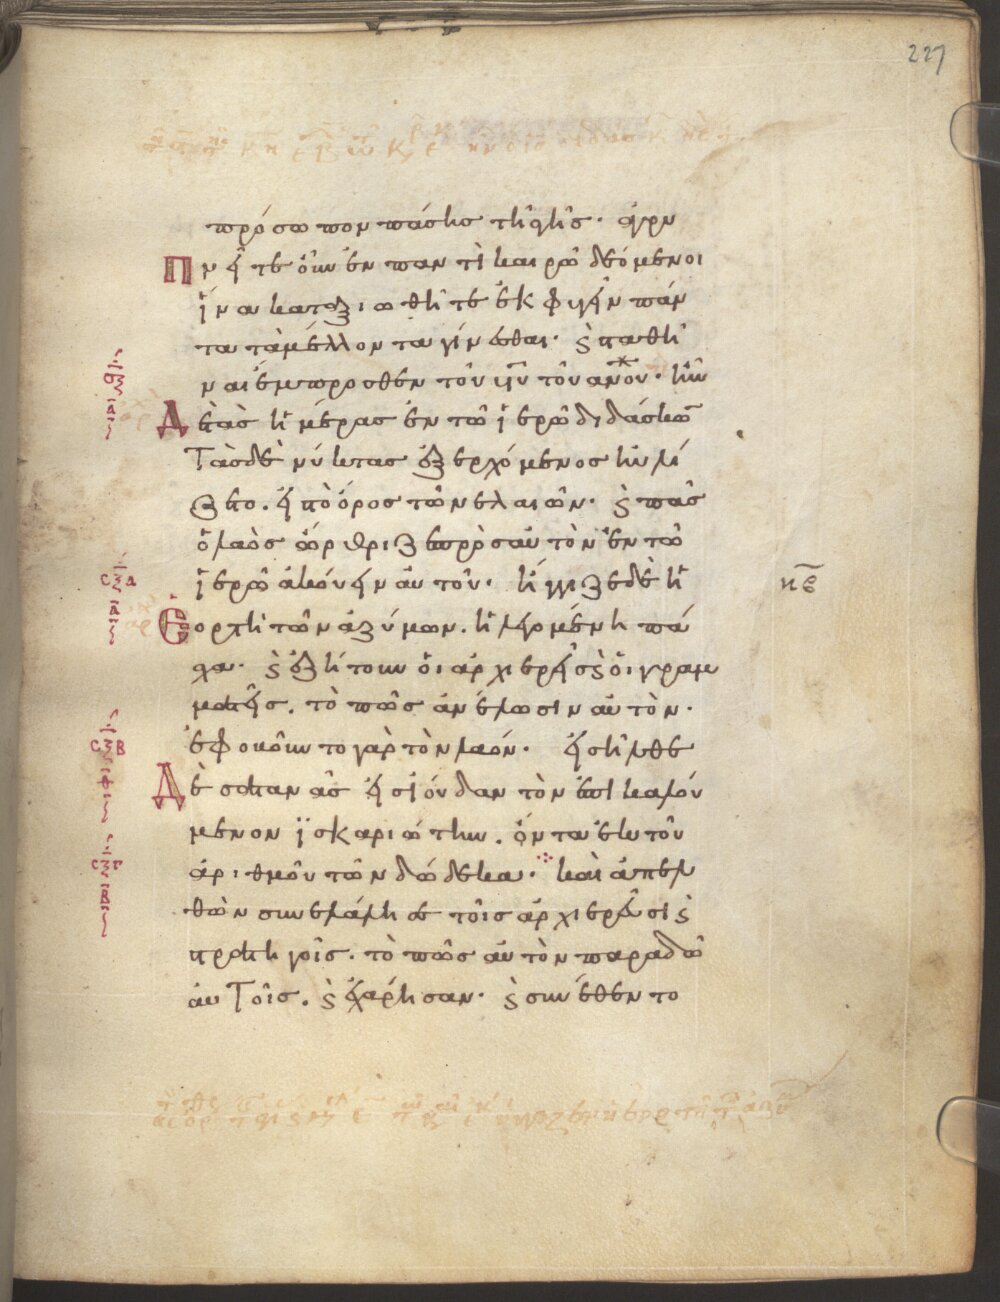 227
πρόσωπον πάσης τῆς γῆς· ἀγρυ
Πνεῖτε οὖν ἐν παντὶ καιρῷ δεόμενοι
ἵνα καταξιωθῆτε ἐκφυγεῖν πάν
τα τὰ μέλλοντα γίνεσθαι· ϗ σταθῆ
ναι ἔμπροσθεν τοῦ υ̅υ̅ τοῦ α̅ν̅ο̅υ̅· ἦν
Δὲ τὰς ἡμέρας ἐν τῷ ἱερῷ διδάσκω
Τὰς δὲ νύκτας ἐξερχόμενος ηὐλί
ζετο. εἰς τὸ ὄρος τῶν ἐλαιῶν· ϗ πᾶς
ὁ λαὸς ὤρθριζε πρὸς αὐτὸν ἐν τῷ
ἱερῷ ἀκούειν αὐτοῦ· ἤγγιζε δὲ ἡ
Ἑορτὴ τῶν ἀζύμων. ἡ λεγομένη πά
σχα· ϗ ἐζήτουν οἱ ἀρχιερεῖς ϗ οἱ γραμ
ματεῖς. τὸ πῶς ἀνέλωσιν αὐτὸν·
ἐφοβοῦντο γὰρ τὸν λαόν· εἰσῆλθε
Δὲ σατανᾶς εἰς ἰούδαν τὸν ἐπικαλού
μενον ἰσκαριώτην. ὄντα ἐκ τοῦ
ἀριθμοῦ τῶν δώδεκα· καὶ ἀπελ
θὼν συνελάλησε τοῖς ἀρχιερεῦσι ϗ
στρατηγοῖς. τὸ πῶς αὐτὸν παραδῷ
αὐτοῖς. ϗ ἐχάρησαν· ϗ συνέθεντο